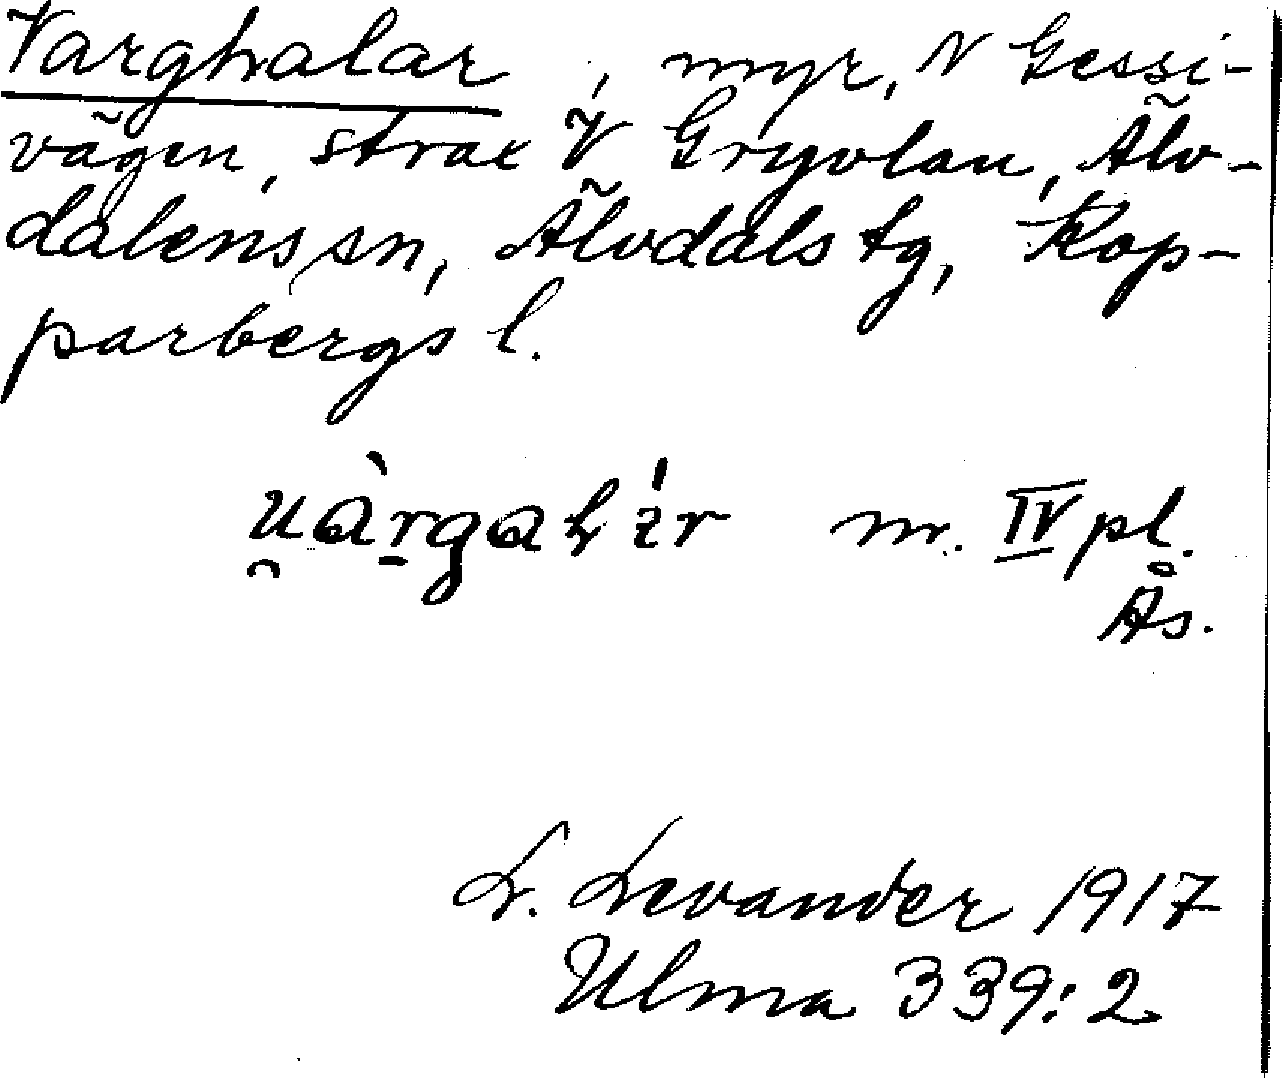 Varghalar, myr, N Gessi-
vägen, strax V Gryvlan, Älv-
dalens sn, Älvdals tg, Kop-
parbergs l.
m. IV pl.
Ås.
L. Levander 1917
Ulma 339:2